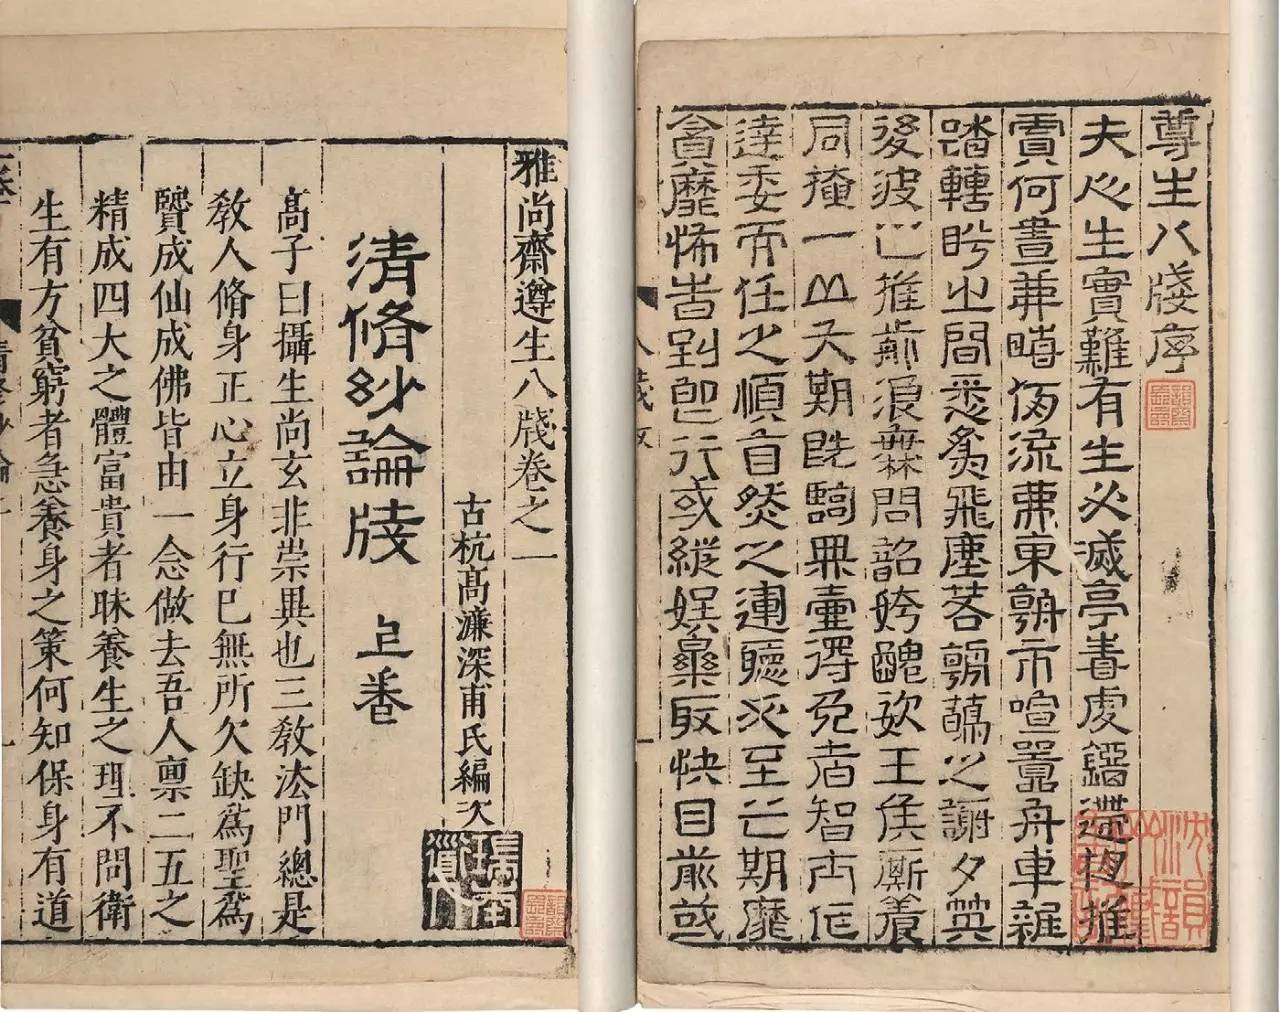 尊生八牋序
夫人生實難有生必滅亭毒虔鐂遞夜推
何晝弗晦何流弗東朝市喧囂舟車雜
踏轉盻之間悉為飛塵若朝蘤之謝夕英
後波之推前浪無問韶姱醜妍王侯廝養
同掩一丘大期既臨疇得免者智士作
達委而任之順自然之運聽必至之期靡
貪靡怖昔別卽行或縱娛樂取快目前或
雅尚齋遵生八牋卷之一
古杭髙濂深甫氏編次
瑞南道人
清脩玅論牋 上卷
髙子曰攝生尚玄非崇異也三教法門總是
教人脩身正心立身行巳無所欠缺為聖為
賢成仙成佛皆由一念做去吾人稟二五之
精成四大之體富貴者昧養生之理不問衛
生有方貧窮者急養身之策何知保身有道